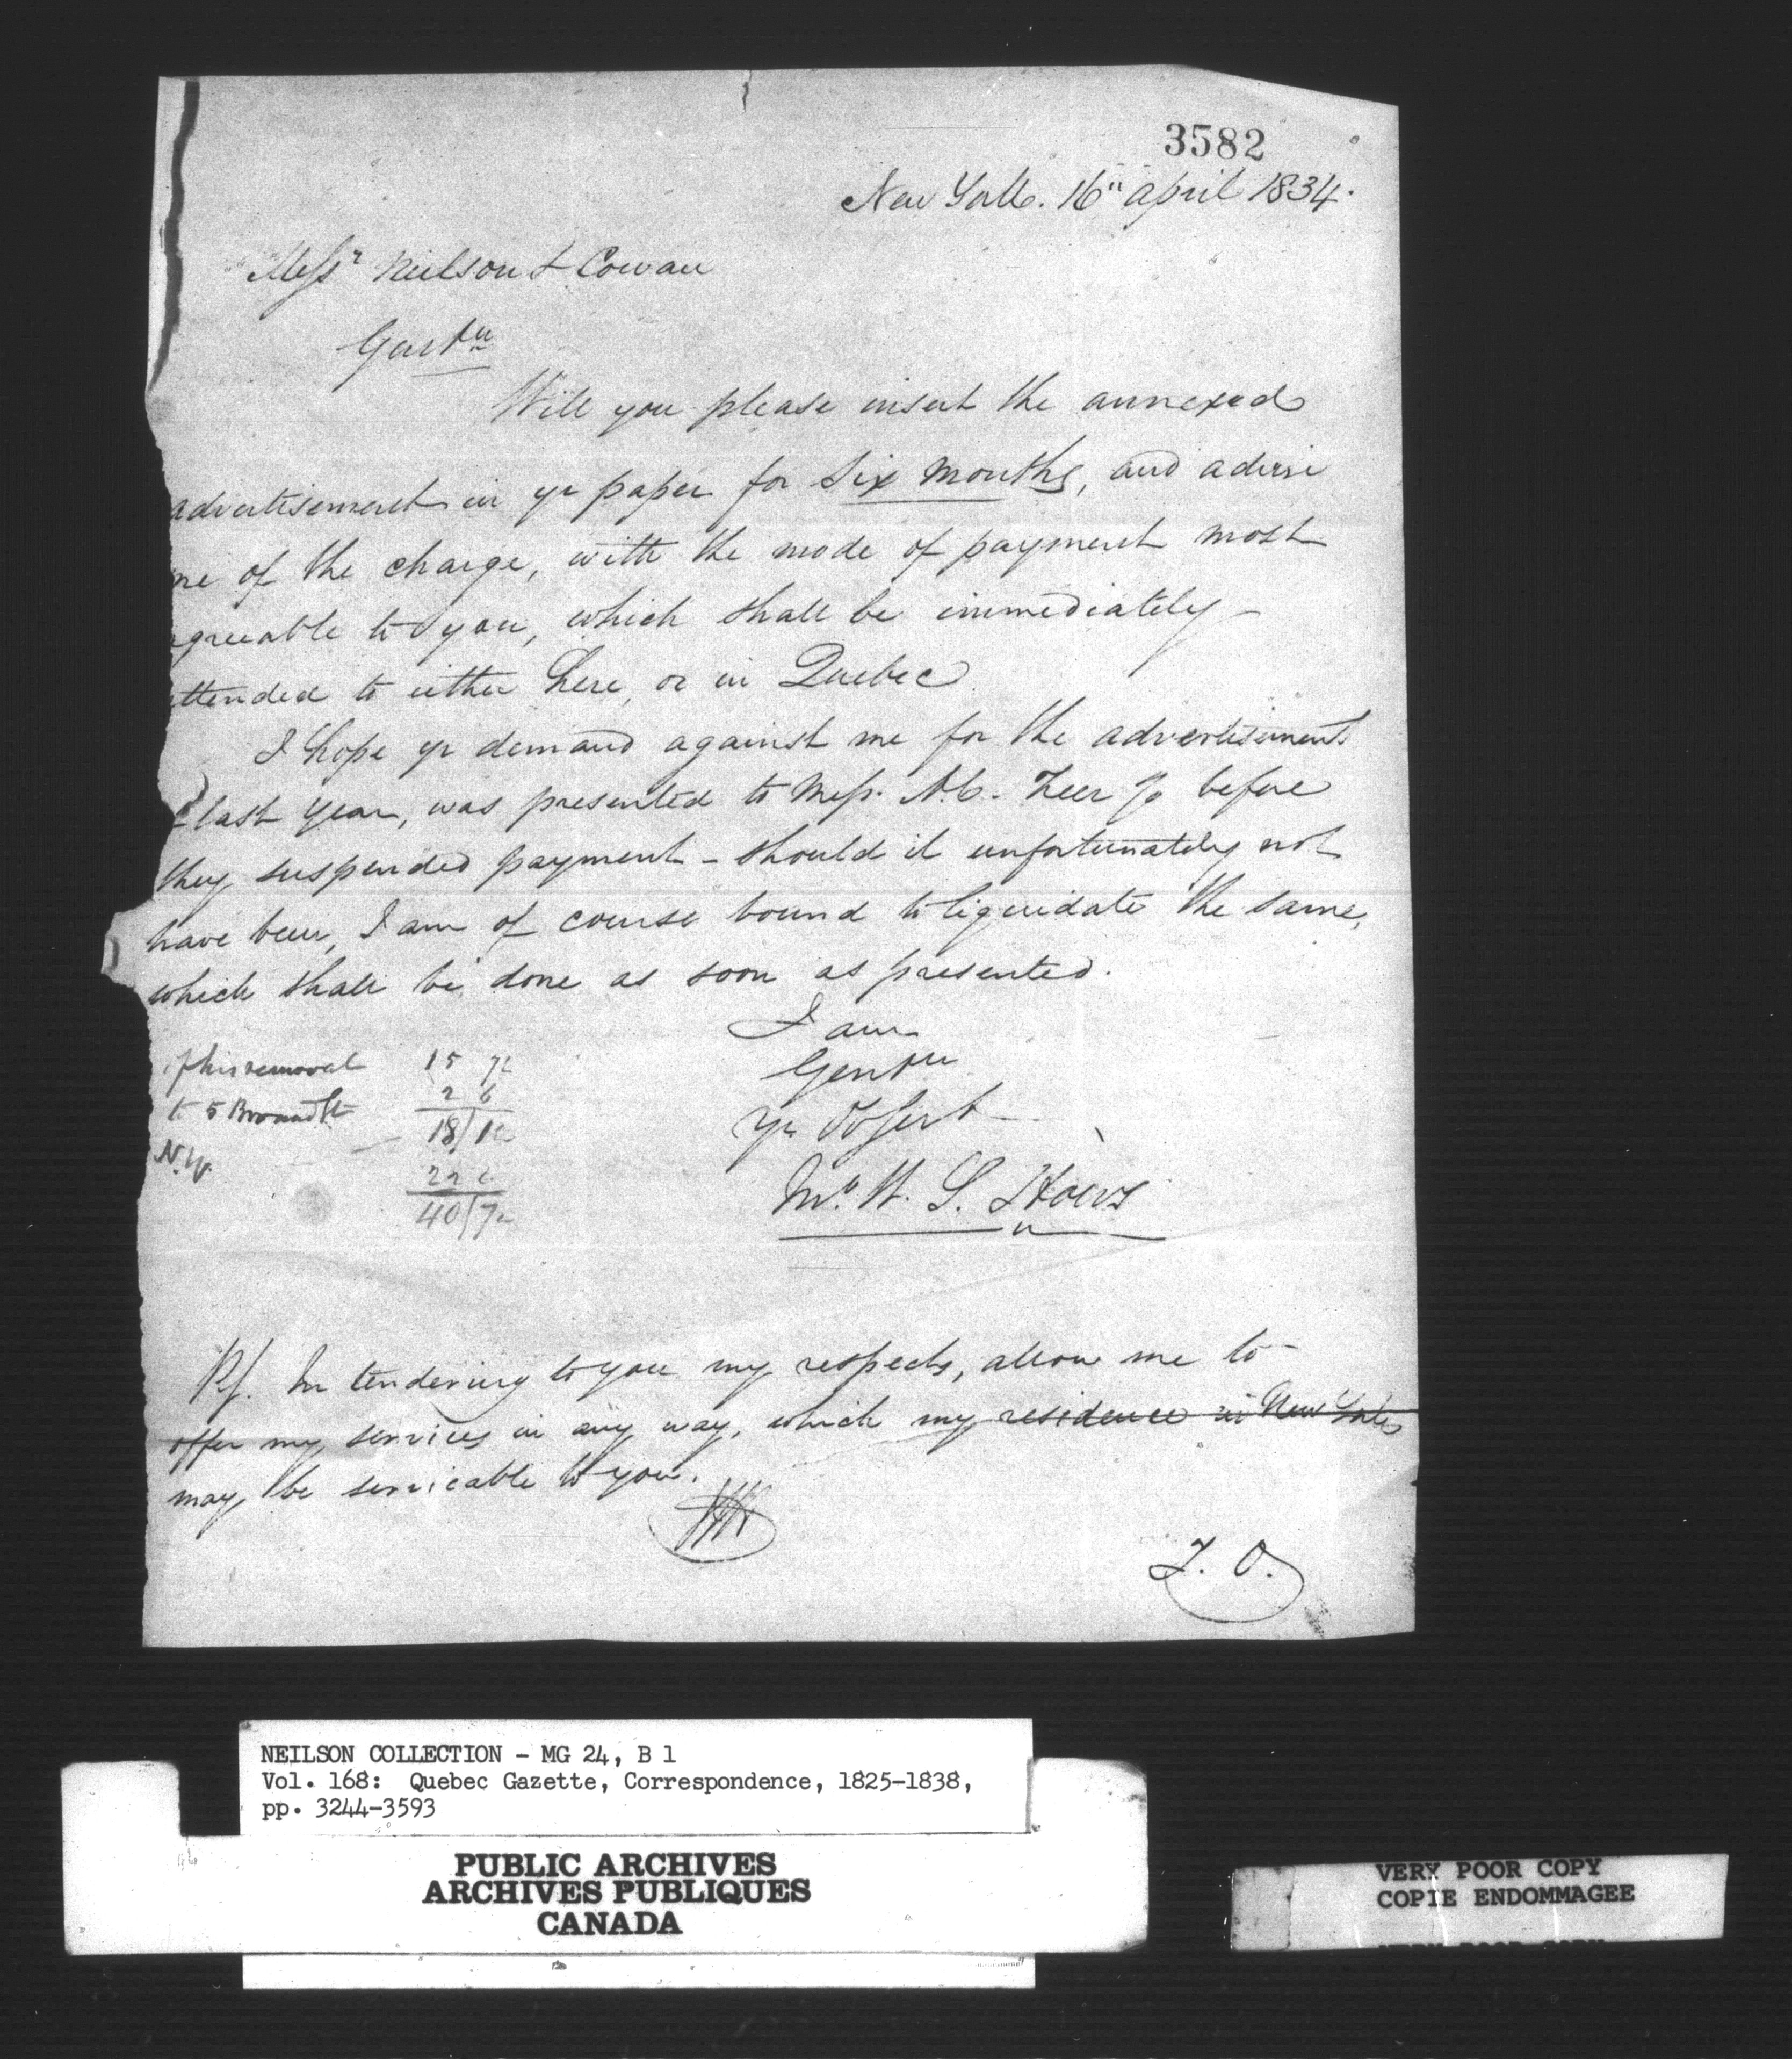 3582
New York. 16" april 1834.
Messrs Neilson & Cowan
Gentn
Will you please insert the annexed
advertisement in yr paper for Six Months, and advise
me of the charge, with the mode of payment most
agreeable to you, which shall be immediately
attended to either here, or in Quebec
I hope yr demand against me for the advertisement
last year, was presented to Mess. before
they suspended payment - should it unfortunately not
have been, I am of course bound to liquidate the same,
which shall be done as soon as presented.
I am
Gentn
yr ObServt
of his removal 15 7½
to 5 Broad St 2 6
N.Y. 18/1½
22 6
40/7½
Ps. In tendering to you my respects, allow me to
offer my services in any way, which my residence in New York
may be servicable to you.
T. O.
NEILSON COLLECTION - MG 24, B 1
Vol. 168: Quebec Gazette, Correspondence, 1825-1838,
pp. 3244-3593
PUBLIC ARCHIVES
ARCHIVES PUBLIQUES
CANADA
VERY POOR COPY
COPIE ENDOMMAGEE